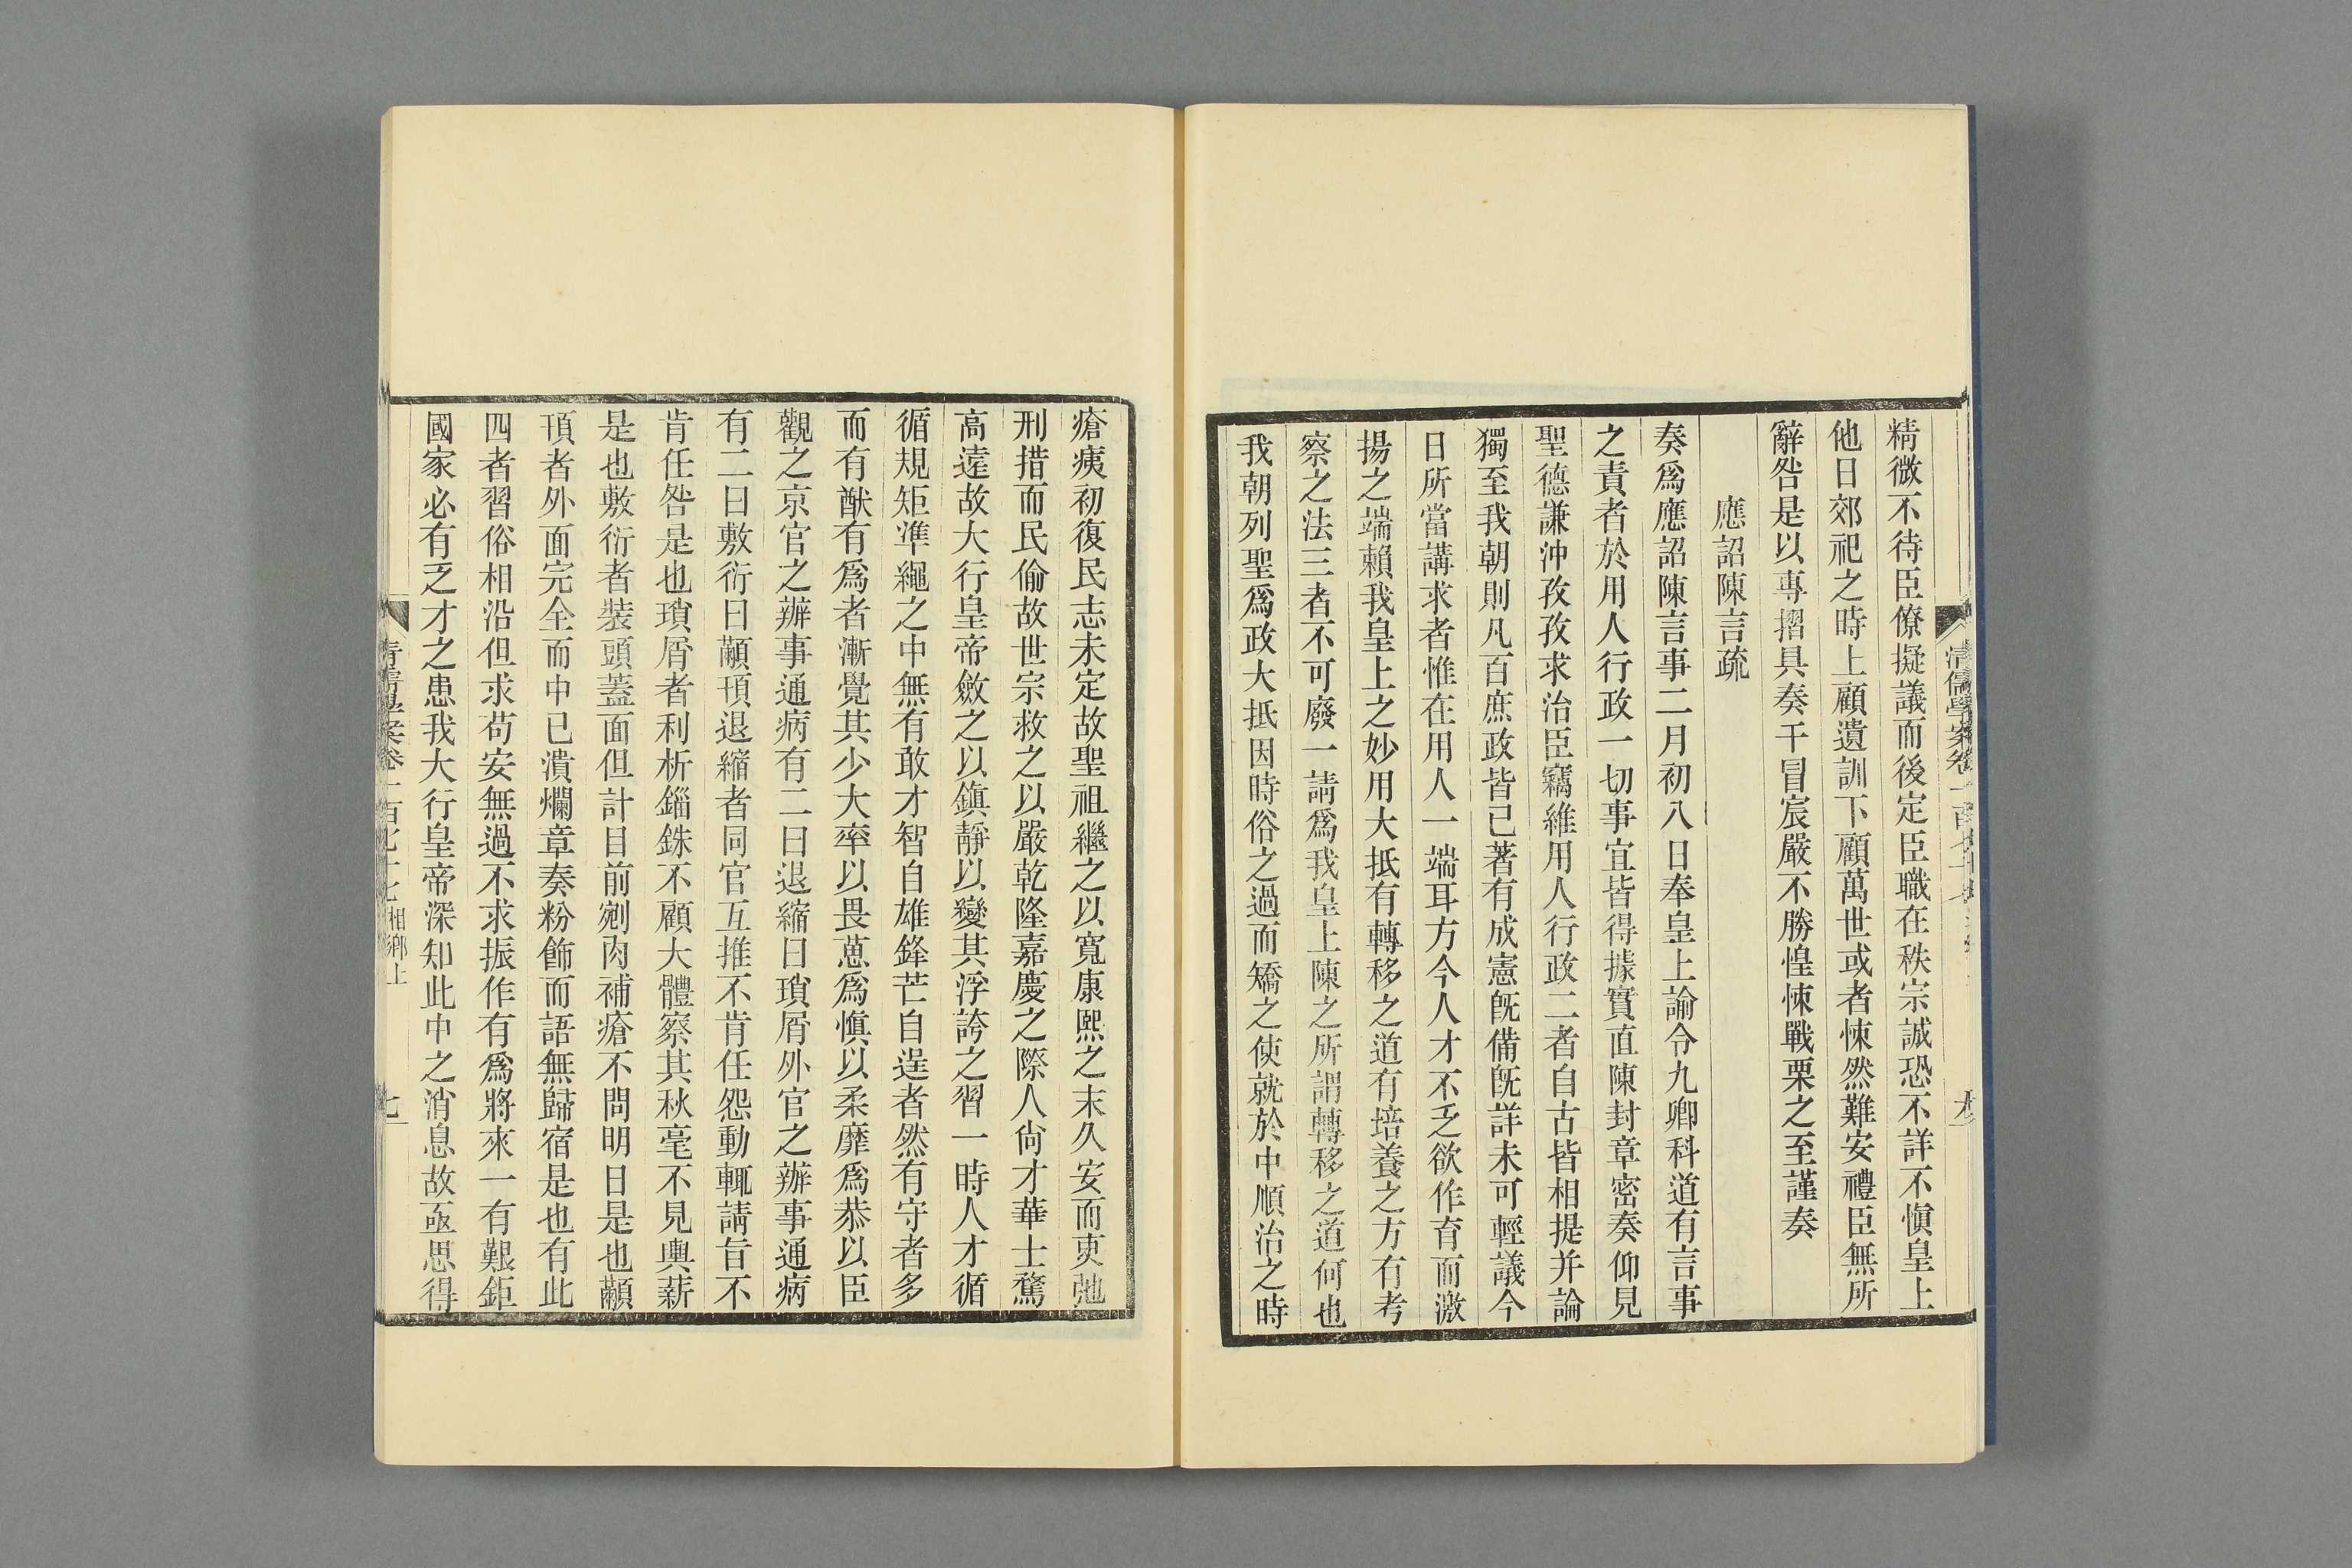 精微不待臣僚擬議而後定臣職在秩宗誠恐不詳不愼皇上
他日郊祀之時上顧遺訓下顧萬世或者悚然難安禮臣無所
辭咎是以專摺具奏干冒宸嚴不勝惶悚戰栗之至謹奏
應詔陳言疏
奏爲應詔陳言事二月初八日奉皇上諭令九卿科道有言事
之責者於用人行政一切事宜皆得據實直陳封章密奏仰見
聖德謙沖孜孜求治臣竊維用人行政二者自古皆相提并論
獨至我朝則凡百庶政皆已著有成憲旣備旣詳未可輕議今
日所當講求者惟在用人一端耳方今人才不乏欲作育而激
揚之端賴我皇上之妙用大抵有轉移之道有培養之方有考
察之法三者不可廢一請爲我皇上陳之所謂轉移之道何也
我朝列聖爲政大抵因時俗之過而矯之使就於中順治之時
瘡痍初復民志未定故聖祖繼之以寬康熙之末久安而吏弛
刑措而民偷故世宗救之以嚴乾隆嘉慶之際人尙才華士騖
高遠故大行皇帝斂之以鎮靜以變其浮誇之習一時人才循
循規矩準繩之中無有敢才智自雄鋒芒自逞者然有守者多
而有猷有爲者漸覺其少大率以畏葸爲愼以柔靡爲恭以臣
觀之京官之辦事通病有二曰退縮曰瑣屑外官之辦事通病
有二曰敷衍曰顢頇退縮者同官互推不肯任怨動輒請旨不
肯任咎是也瑣屑者利析錙銖不顧大體察其秋毫不見輿薪
是也敷衍者裝頭蓋面但計目前剜肉補瘡不問明日是也顢
頇者外面完全而中已潰爛章奏粉飾而語無歸宿是也有此
四者習俗相沿但求苟安無過不求振作有爲將來一有艱鉅
國家必有乏才之患我大行皇帝深知此中之消息故亟思得